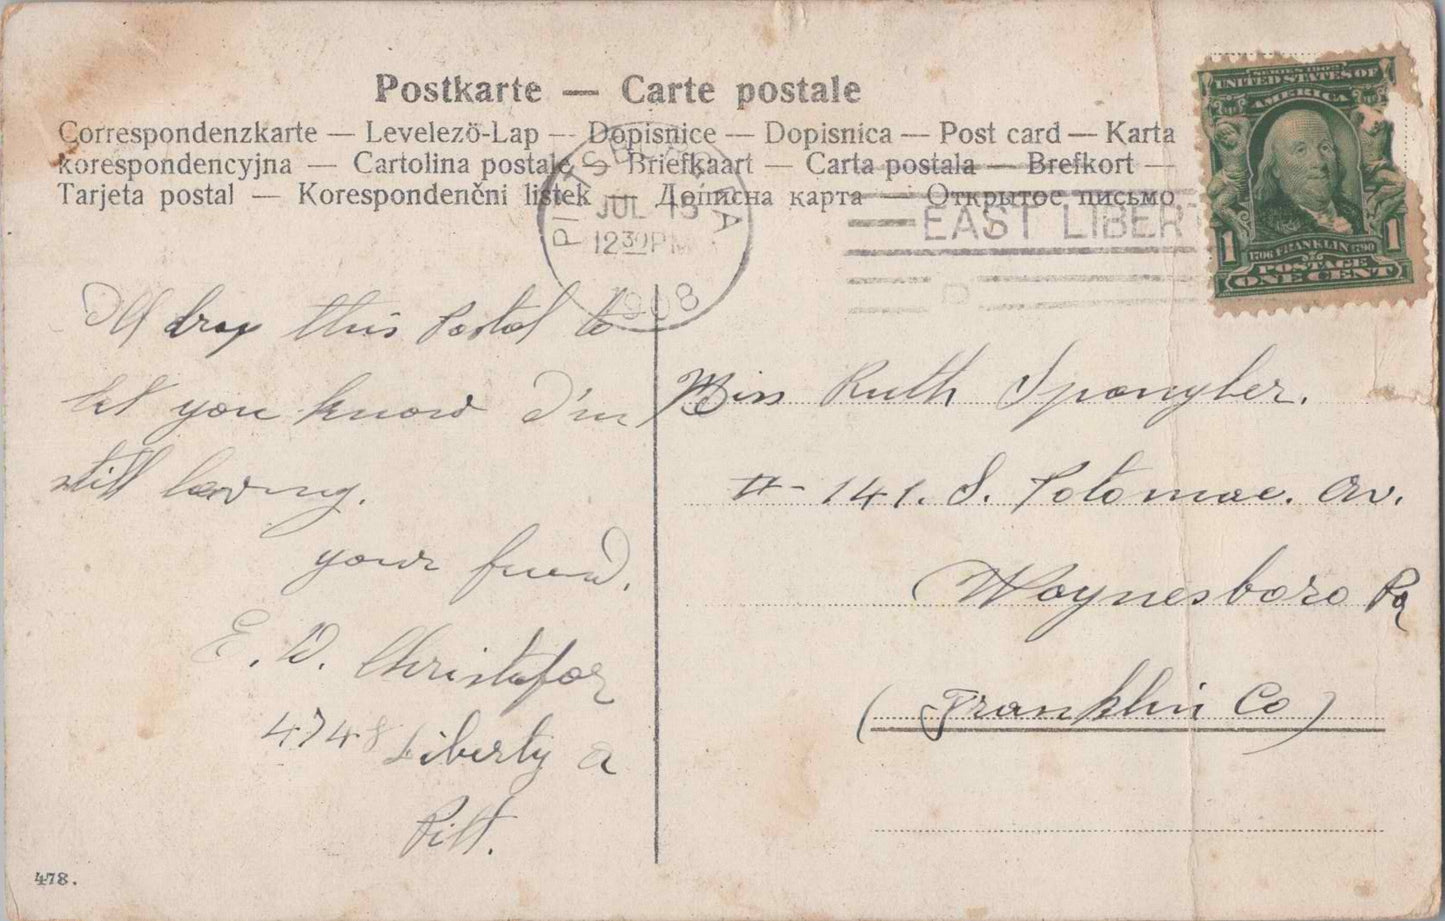 Postkarte — Carte postale
Correspondenzkarte — Levelező-Lap — Dopisnice — Dopisnica — Post card — Karta
korespondencyjna — Cartolina postale — Briefkaart — Carta postala — Brefkort —
Tarjeta postal — Korespondenčni listek — Дописна карта — Открытое письмо
PITTSBURG, PA
JUL 15
12 30 PM
1908
EAST LIBERT
SERIES 1902
UNITED STATES OF
AMERICA
1 1706 FRANKLIN 1790 1
POSTAGE
ONE CENT
I'll drop this Postal to
let you know I'm
still loving.
your friend.
E. D. Christofor
4748 Liberty a
Pitt.
Miss Ruth Spangler.
# 141. S. Potomac. Av.
Waynesboro Pa
(Franklin Co)
478.